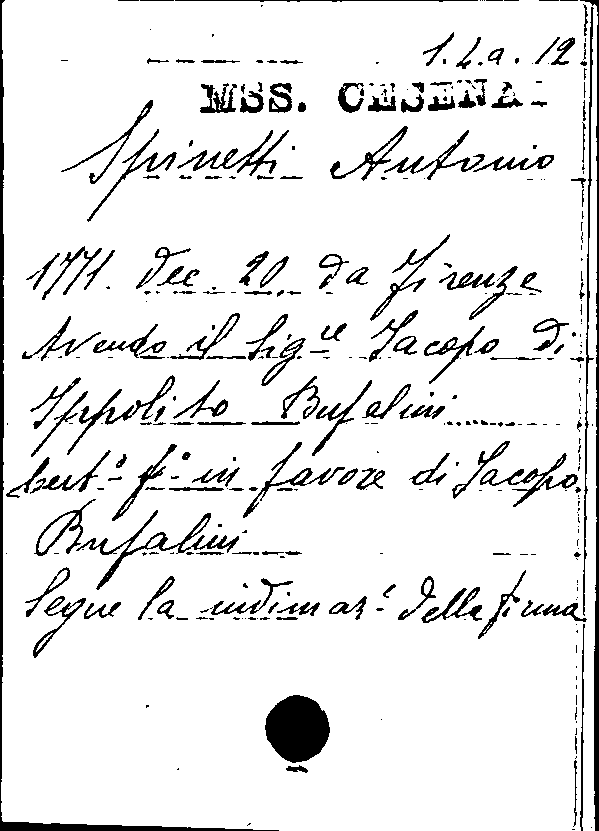 1.4.a.12
MSS. CESENA
Spinetti Antonio
1771. dec. 20. da Firenze
Avendo il Sig.re Jacopo di
Ippolito Bufalini......
cert.o f.o in favore di Jacopo
Bufalini
Segue la della firma